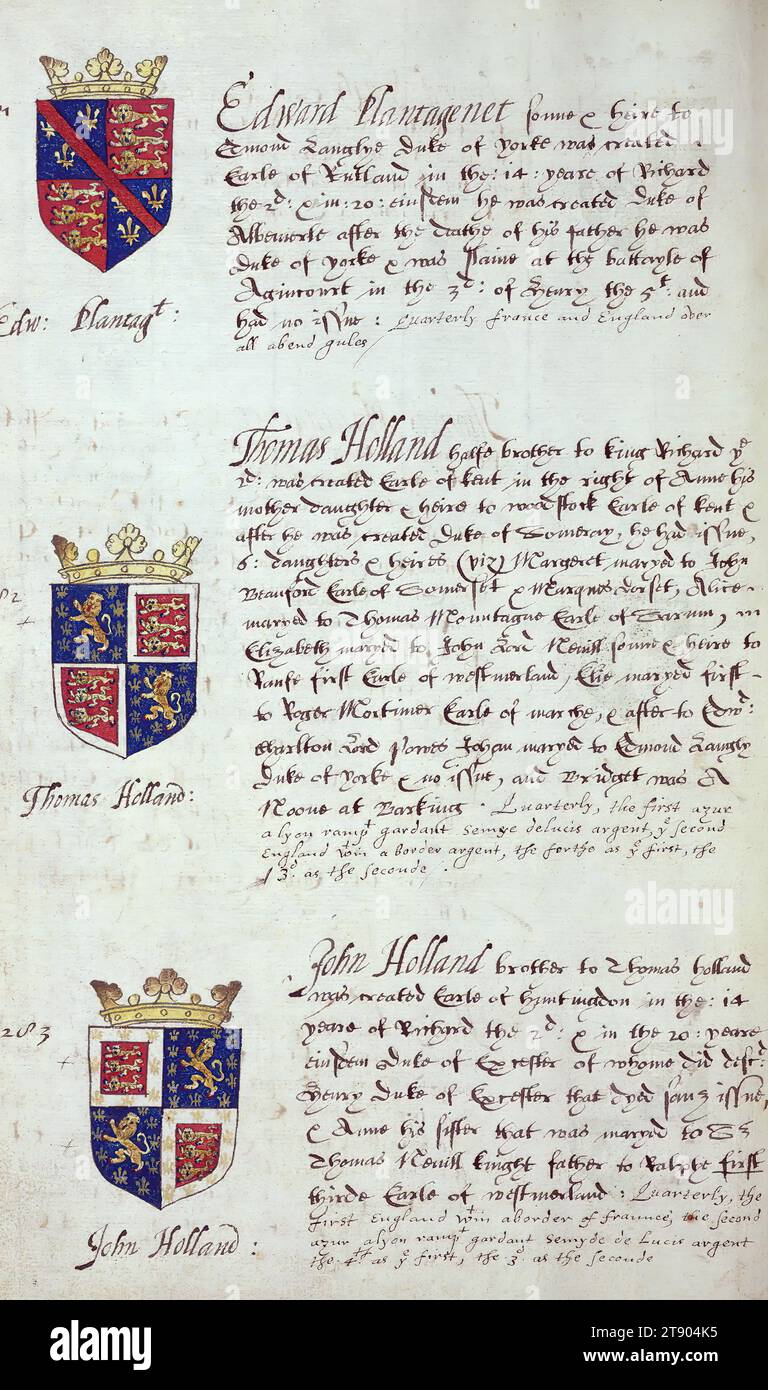 Edward Plantagenet sonne & heire to
Edmond Langlye Duke of Yorke was created
Earle of Rutland in the: 14: yeare of Richard
the 2d: & in: 20: eiusdem he was created Duke of
Albemerle after the deathe of his father he was
Duke of Yorke & was slaine at the battayle of
Agincourt in the 3d: of Henry the 5t: and
had no issue: Quarterly france and England over
all abend gules
Edw: Plantagt:
Thomas Holland halfe brother to king Richard ye
2d: was created Earle of kent in the right of Anne his
mother daughter & heire to woodstock Earle of kent &
after he was created Duke of Surrey, he had issue,
6: daughters & heires (viz) Margeret maryed to John
Beauford Earle of Somerset & Marques dorset, Alice
maryed to Thomas Mountague Earle of Sarum,
Elizabeth maryed to John Lord Nevill sonne & heire to
Raufe first Earle of westmerland, Elie maryed first
to Roger Mortimer Earle of marche, & after to Edwd:
Charlton Lord Powes Johan maryed to Edmond Langly
Duke of Yorke & no issue, and Bridget was A
Noone at Barking. Quarterly, the first azur
a lyon rampt gardant Semye delucis argent, ye second
England wtin a border argent, the forthe as ye first, the
3d: as the seconde.
82
Thomas Holland:
John Holland brother to Thomas holland
was created Earle of Huntingdon in the: 14
yeare of Richard the 2d: & in the 20: yeare
eiusdem Duke of Excester of whome did desc:
Henry Duke of Excester that dyed sanz issue,
& Anne his sister that was maryed to Sr
Thomas Nevill knight father to Ralphe first
thirde Earle of westmerland: Quarterly, the
first England wtin aborder of france, the second
azur a lyon rampt gardant Semyde de Lucis argent
the 4th as ye first, the 3d: as the seconde
283
John Holland:
alamy
alamy
alamy
Image ID: 2T904K5
www.alamy.com